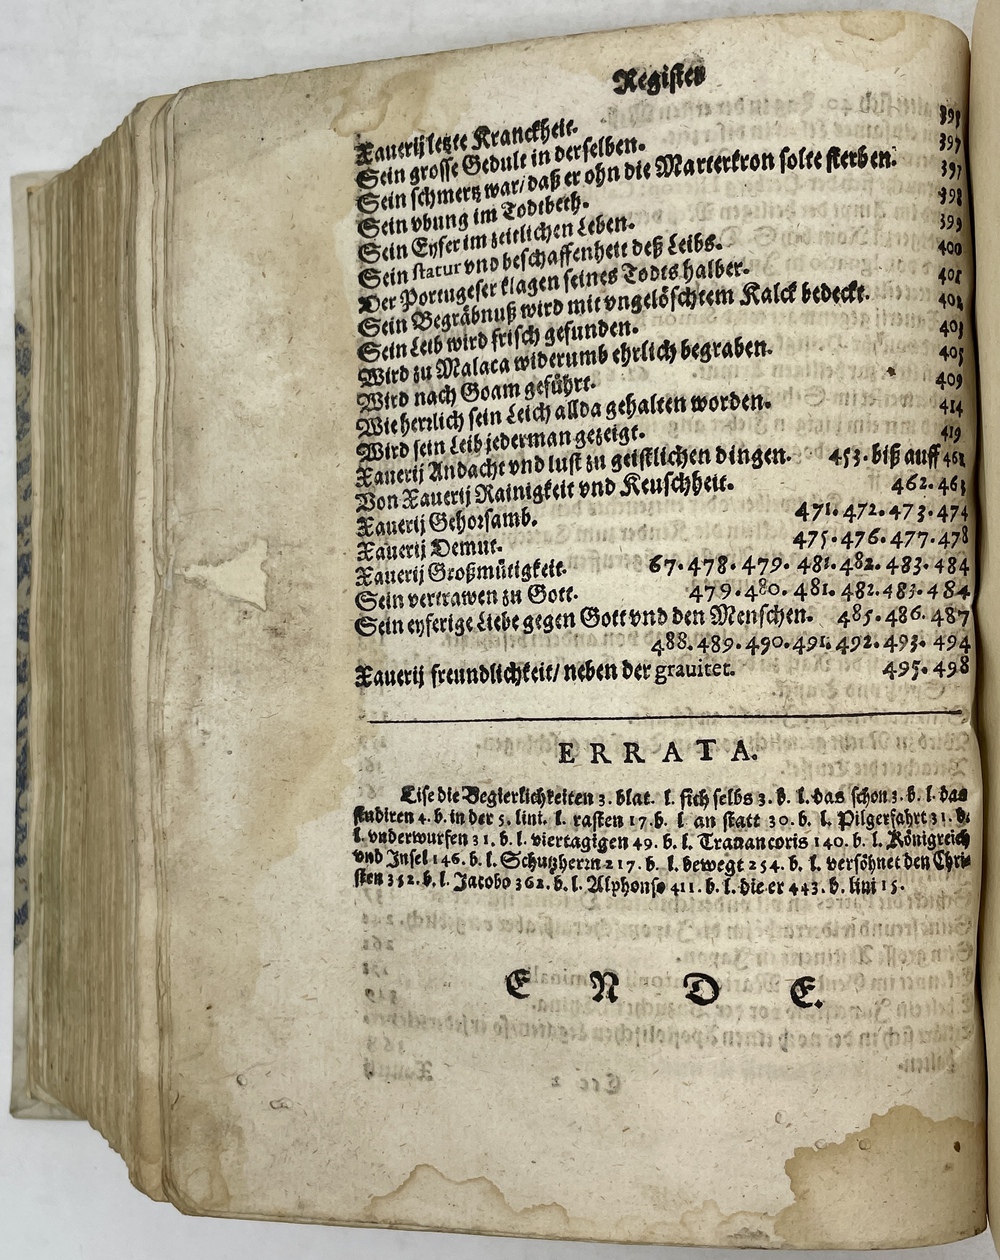 Register
Xauerij letzte Kranckheit. 395
Sein grosse Gedult in derselben. 397
Sein schmertz war/ daß er ohn die Marterkron solte sterben. 397
Sein vbung im Todtbeth. 398
Sein Eyfer im zeitlichen Leben. 399
Sein statur vnd beschaffenheit deß Leibs. 400
Der Portugeser klagen seines Todts halber. 401
Sein Begräbnuß wird mit vngelöschtem Kalck bedeckt. 402
Sein Leib wird frisch gefunden. 403
Wird zu Malaca widerumb ehrlich begraben. 405
Wird nach Goam geführt. 409
Wie herrlich sein Leich allda gehalten worden. 414
Wird sein Leib jederman gezeigt. 419
Xauerij Andacht vnd lust zu geistlichen dingen. 453. biß auff 461
Von Xauerij Rainigkeit vnd Keuschheit. 462. 463
Xauerij Gehorsamb. 471. 472. 473. 474
Xauerij Demut. 475. 476. 477. 478
Xauerij Großmütigkeit. 67. 478. 479. 481. 482. 483. 484
Sein vertrawen zu Gott. 479. 480. 481. 482. 483. 484
Sein eyferige Liebe gegen Gott vnd den Menschen. 485. 486. 487
488. 489. 490. 491. 492. 493. 494
Xauerij freundlichkeit/ neben der grauitet. 495. 498
ERRATA.
Lise die Begierlichkeiten 3. blat. l. sich selbs 3. b. l. das schon 3. b. l. das
studiren 4. b. in der 5. lini. l. rasten 17. b. l an statt 30. b. l. Pilgerfahrt 31. b.
l. vnderwurfen 31. b. l. viertagigen 49. b. l. Trauancoris 140. b. l. Königreich
vnd Insel 146. b. l. Schutzherrn 217. b. l. bewegt 254. b. l. versöhnet den Chri-
sten 352. b. l. Jacobo 362. b. l. Alphonso 411. b. l. die er 443. b. lini 15.
ENDE.